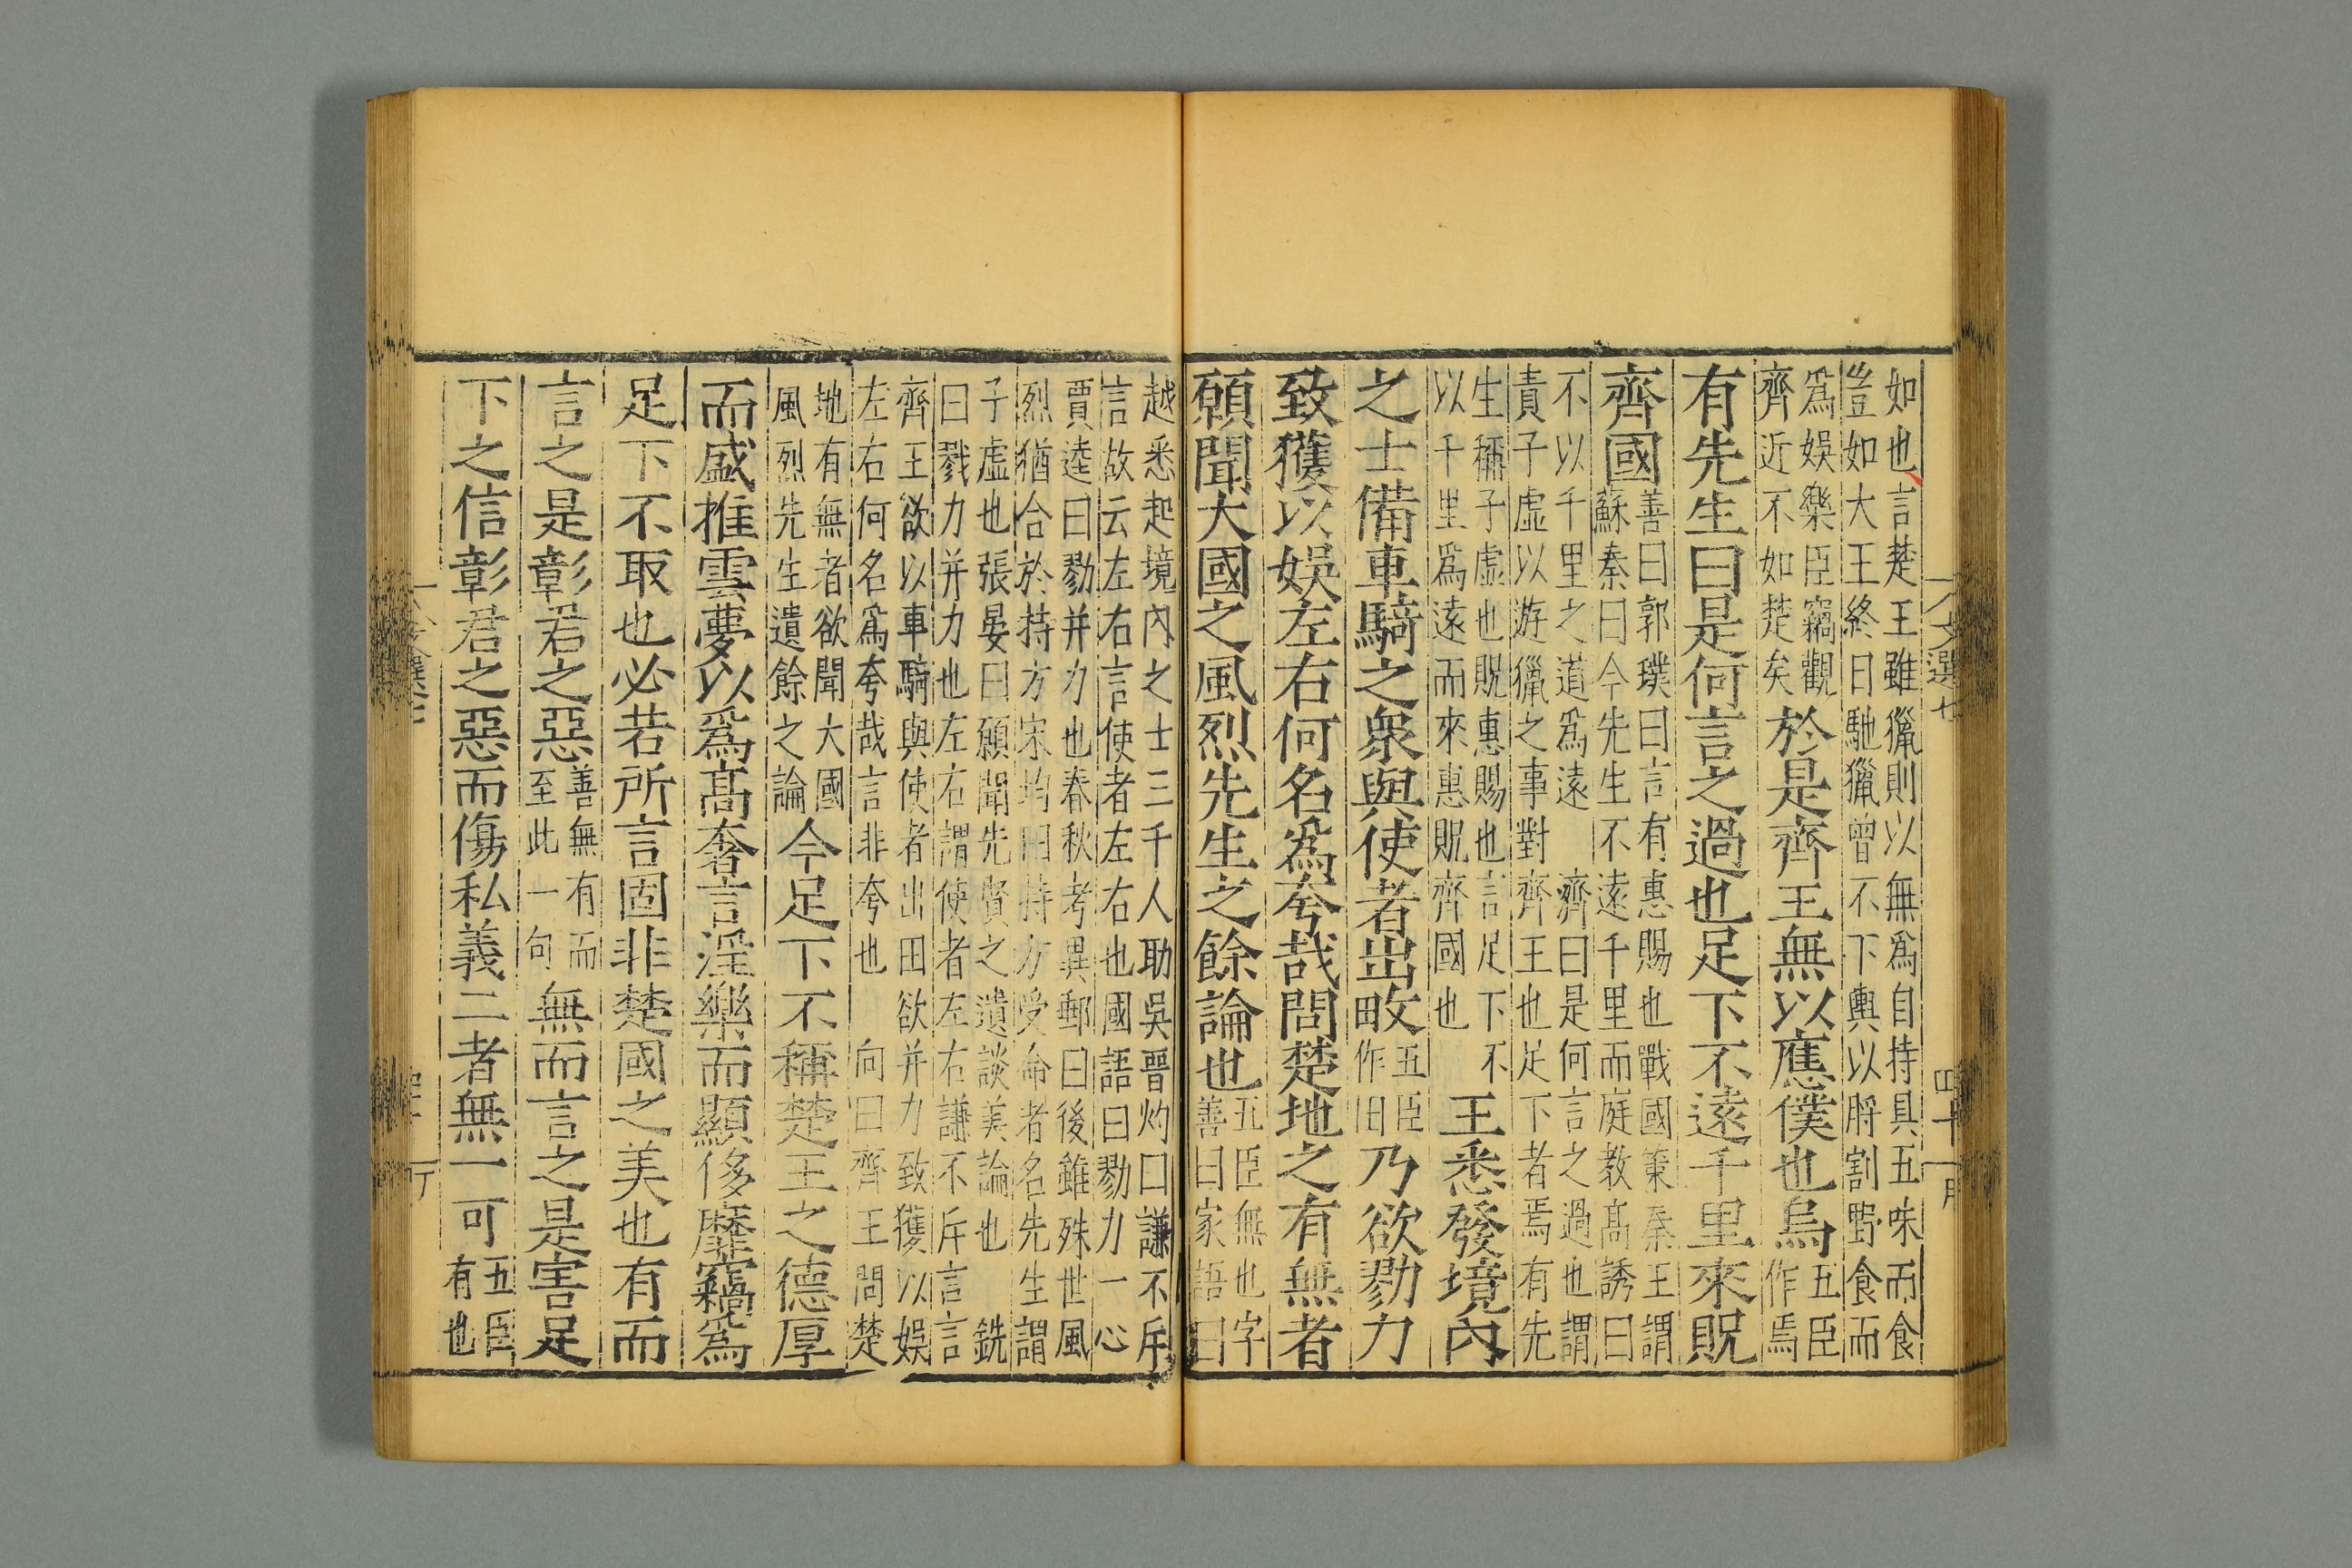 如也言楚王雖獵則以無爲自持具五味而食
豈如大王終日馳獵曾不下輿以脟割野食而
爲娛樂臣竊觀
齊近不如楚矣
於是齊王無以應僕也烏
五臣
作焉
有先生曰是何言之過也足下不遠千里來貺
齊國
善曰郭璞曰言有惠賜也戰國策秦王謂
蘇秦曰今先生不遠千里而庭教髙誘曰
不以千里之道爲遠 濟曰是何言之過也謂
責子虛以游獵之事對齊王也足下者焉有先
生稱子虛也貺惠賜也言足下不
以千里爲遠而來惠貺齊國也
王悉發境内
之士備車騎之衆與使者出畋
五臣
作田
乃欲勠力
致獲以娛左右何名爲夸哉問楚地之有無者
願聞大國之風烈先生之餘論也
五臣無也字
善曰家語曰
越悉起境内之士三千人助吳晋灼曰謙不斥
言故云左右言使者左右也國語曰勠力一心
賈逵曰勠并力也春秋考異郵曰後雖殊世風
烈猶合於持方宋均曰持方受命者名先生謂
子虛也張晏曰願聞先賢之遺談美論也 銑
曰戮力并力也左右謂使者左右謙不斥言言
齊王欲以車騎與使者出田欲并力致獲以娛
左右何名爲夸哉言非夸也 向曰齊王問楚
地有無者欲聞大國
風烈先生遺餘之論
今足下不稱楚王之德厚
而盛推雲夢以爲髙奢言淫樂而顯侈靡竊爲
足下不取也必若所言固非楚國之美也有而
言之是彰君之惡
善無有而
至此一句
無而言之是害足
下之信彰君之惡而傷私義二者無一可
五臣
有也